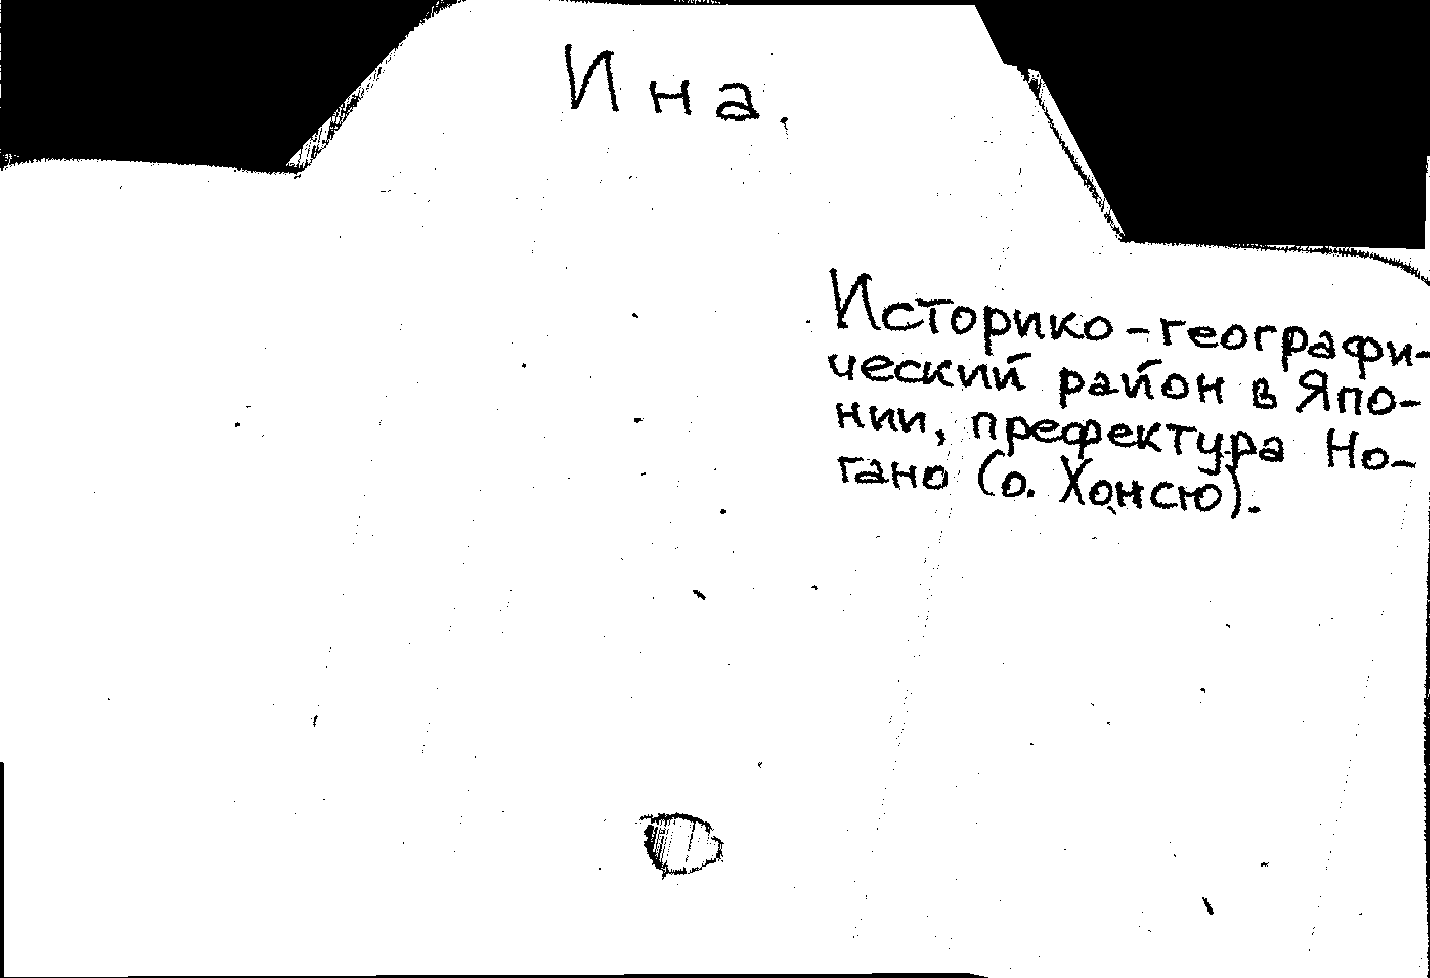 Ина.
Историко-географи-
ческий район в Япо-
нии, префектура На-
гано (о. Хонсю).